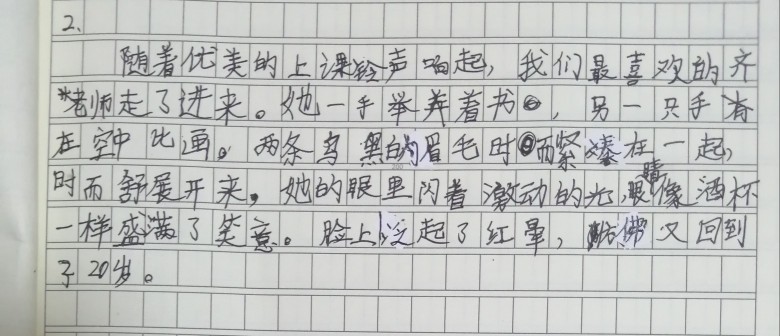 2.
随着优美的上课铃声响起，我们最喜欢的齐
老师走了进来。她一手举着书，另一只手
在空中比画。两条乌黑的眉毛时而紧凑在一起，
时而舒展开来，她的眼里闪着激动的光，眼睛像酒杯
一样盛满了笑意。脸上泛起了红晕，彷佛又回到
了20岁。